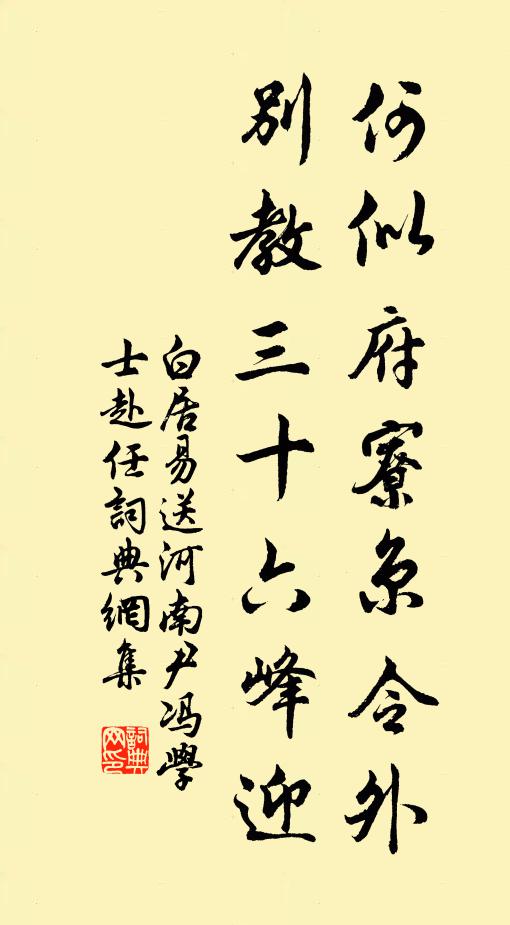 何似府寮京令外
別教三十六峰迎
白居易送河南尹冯學
士赴任詞典網集
詞典
网印